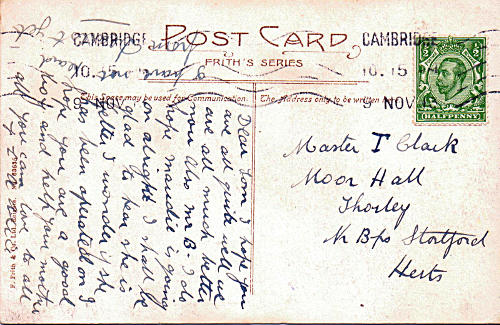 POST CARD
FRITH'S SERIES
CAMBRIDGE
10.15
9 NOV
CAMBRIDGE
10.15
9 NOV
HALFPENNY
This Space may be used for Communication.
The Address only to be written
Dear Tom I hope you
are all quite well we
are all much better
now also Mr B. I do
hope Maudie is going
on alright I shall be
glad to hear she is
better I wonder if she
has been operated on I
hope you are a good
boy and help your mother
all you can love to all
I have not
heard
from
yet
Master T Clark
Moor Hall
Thorley
Nr Bps Stortford
Herts